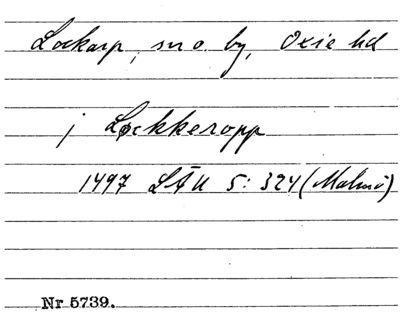 Lockarp, sn o. by, Oxie hd
j Lockkeropp
1497 LÄU 5: 324 (Malmö)
Nr 5739.